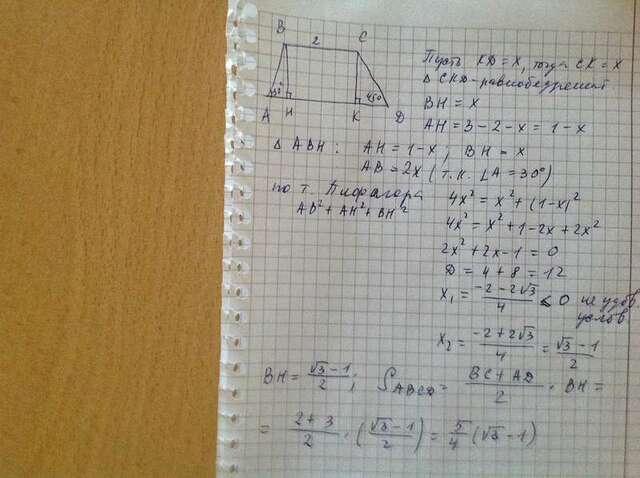 B 2 C
A 30° H K 45° D
Пусть KD = x, тогда CK = x
Δ CKD - равнобедренный
BH = x
AH = 3 - 2 - x = 1 - x
Δ ABH: AH = 1 - x; BH = x
AB = 2x (т.к. ∠A = 30°)
по т. Пифагора
AB² + AH² + BH²
4x² = x² + (1-x)²
4x² = x² + 1 - 2x + 2x²
2x² + 2x - 1 = 0
D = 4 + 8 = 12
x₁ = (-2 - 2√3)/4 < 0 не удов
услов
x₂ = (-2 + 2√3)/4 = (√3 - 1)/2
BH = (√3 - 1)/2; S_ABCD = (BC + AD)/2 · BH =
= (2 + 3)/2 · ((√3 - 1)/2) = 5/4 (√3 - 1)